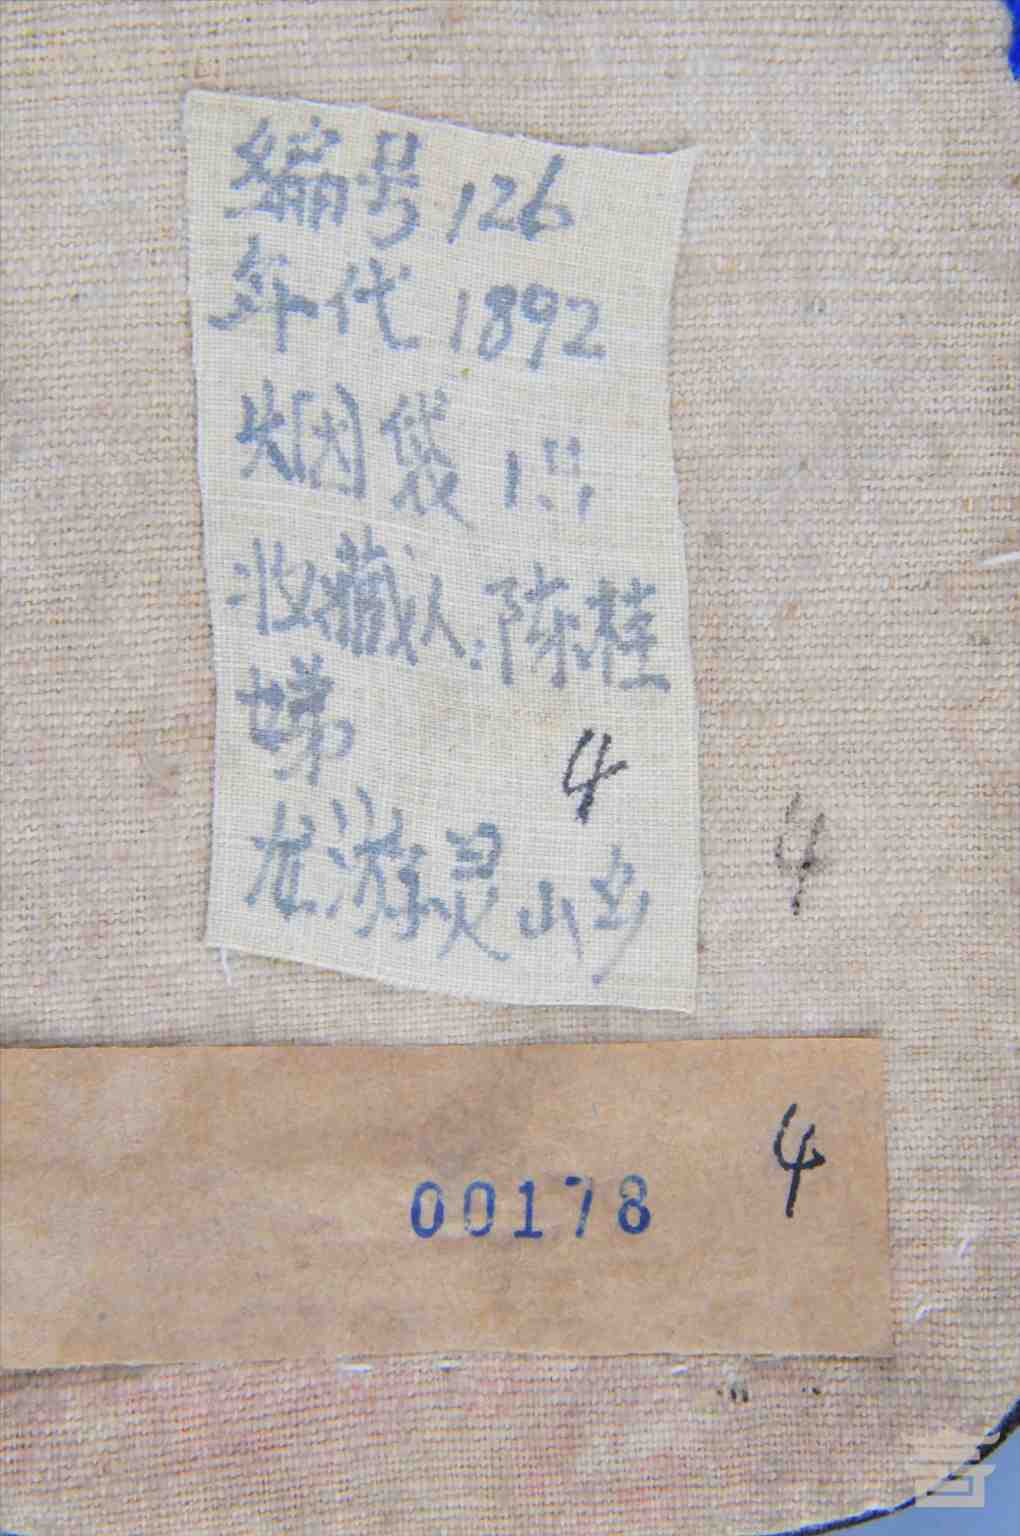 编号126
年代1892
烟袋1
收藏人:陈桂
娣
4
龙游灵山乡
4
4
00178